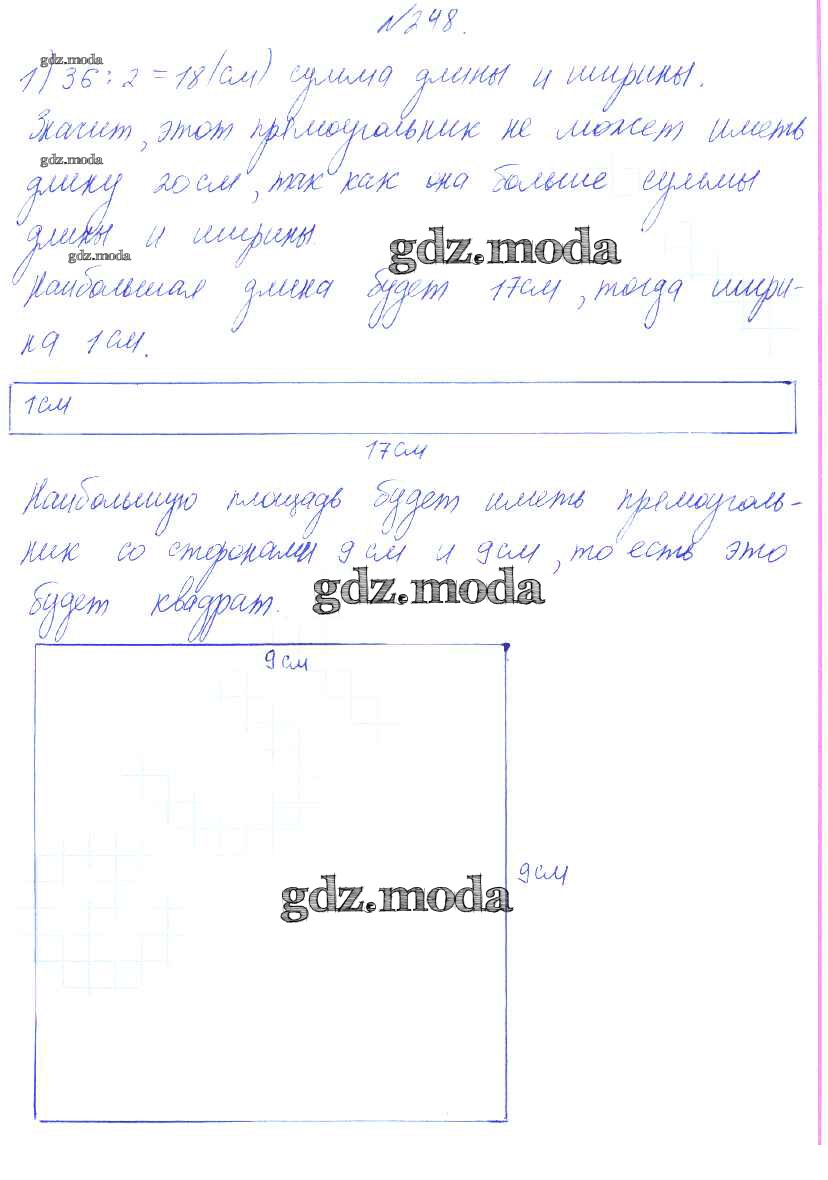 №248.
gdz.moda
1) 36 : 2 = 18 (см) сумма длины и ширины.
Значит, этот прямоугольник не может иметь
gdz.moda
длину 20 см, так как она больше суммы
длины и ширины.
gdz.moda
gdz.moda
Наибольшая длина будет 17 см, тогда шири-
на 1 см.
1 см
17 см
Наибольшую площадь будет иметь прямоуголь-
ник со сторонами 9 см и 9 см, то есть это
будет квадрат.
gdz.moda
9 см
9 см
gdz.moda